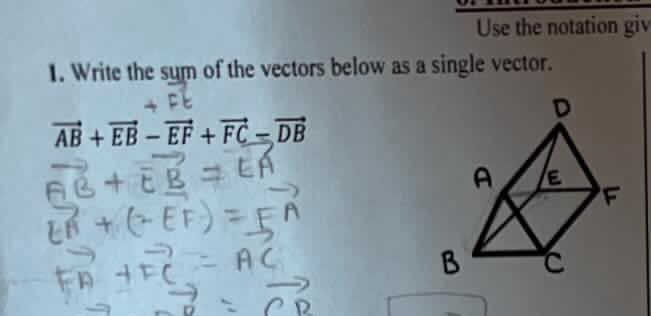 Use the notation giv
1. Write the sum of the vectors below as a single vector.
+ FE
AB + EB – EF + FC – DB
AB + EB = EA
EA + (- EF) = FA
FA + FC = AC
= CB
D
A
E
F
B
C